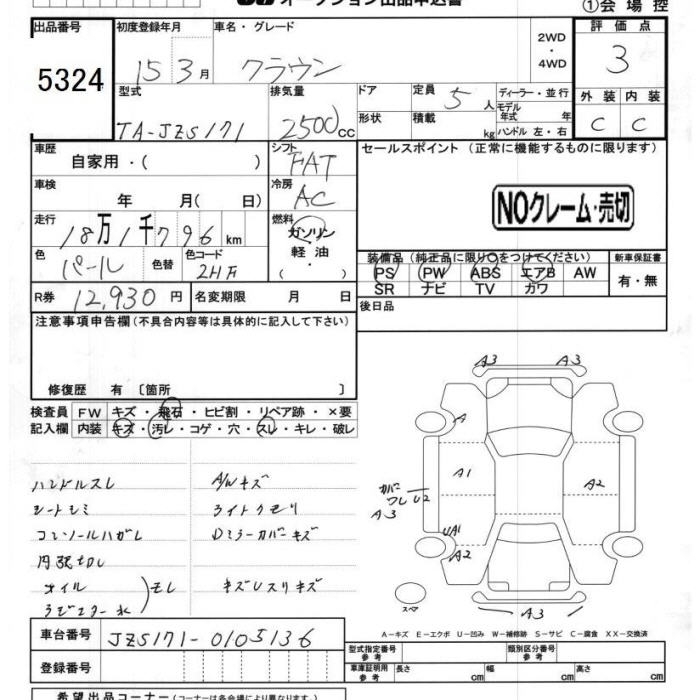 オークション出品申込書
①会場控
出品番号 初度登録年月 車名・グレード 2WD ・ 4WD 評価点
5324 15 3月 クラウン 3
型式 排気量 ドア 定員 5人 ディーラー・並行 外装 内装
TA-JZS171 2500cc 形状 積載 kg モデル年式 年 ハンドル 左・右 C C
車歴 自家用・( ) シフト FAT セールスポイント (正常に機能するものに限ります)
車検 年 月( 日) 冷房 AC
NOクレーム・売切
走行 18万1千796km 燃料 ガソリン 軽油 ・( )
色 パール 色替 色コード 2HF
装備品(純正品に限り○をつけてください) 新車保証書
PS PW ABS エアB AW 有・無
SR ナビ TV カワ
R券 12,930円 名変期限 月 日 後日品
注意事項申告欄(不具合内容等は具体的に記入して下さい)
修復歴 有 [箇所 ]
検査員 FW キズ・飛石・ヒビ割・リペア跡・×要
記入欄 内装 キズ・汚レ・コゲ・穴・スレ・キレ・破レ
A3 A3
A
A1 A2
カバーワレU2
A3
UA1
A2
スペア
A3
ハンドルスレ A/Wキズ
シートシミ ライトクモリ
コンソールハガレ Dミラーカバーキズ
オイル モレ キズUスリキズ
ラジエター水
A-キズ E-エクボ U-凹み W-補修跡 S-サビ C-腐食 XX-交換済
車台番号 JZS171-0105136 型式指定番号 参考 類別区分番号 参考
登録番号 車庫証明用 参考 長さ cm 幅 cm 高さ cm
希望出品コーナー(コーナーは各会場により異なります)